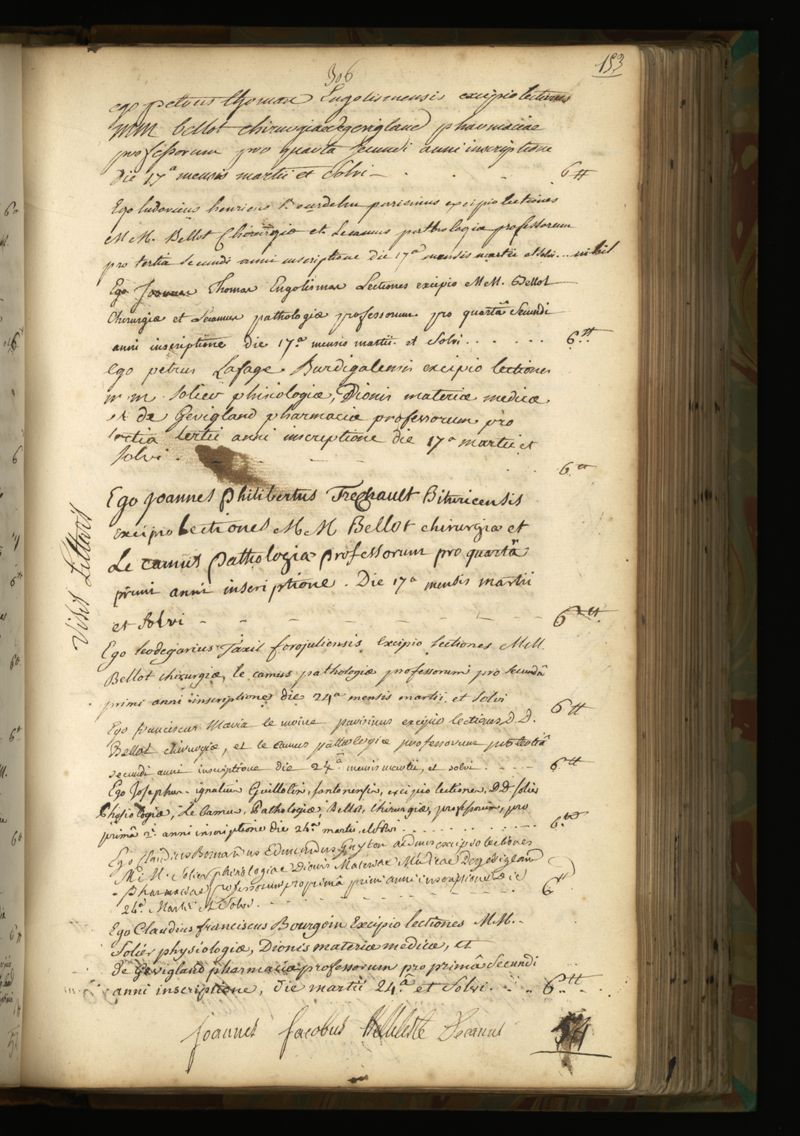 306
153
ego petrus thomas Engolismensis excipio lectiones
MM bellot chirurgiae de gevigland pharmaciae
professorum pro quarta secundi anni inscriptione
die 17a mensis martii et solvi - 6tt
Ego ludovicus henricus Bourdelin parisinus excipio lectiones
MM. Bellot Chirurgiæ et Lecamus pathologiæ professorum
pro tertia secundi anni inscriptione die 17a mensis martii et solvi ... nihil
Ego Thomas Engolismæ Lectiones excipio MM. Bellot
Chirurgiæ et Lecamus pathologiæ professorum pro quartâ secundi
anni inscriptione die 17a mensis martii et solvi . . . . . . 6tt
Ego petrus Lafage Burdigalensis excipio lectiones
mm. solier phisiologiæ, Dionis materiæ medicæ
et de Gevigland pharmaciæ professorum pro
tertia tertii anni inscriptione die 17a martii et
solvi . - - - 6tt
Ego Joannes Philibertus Trechault Bituricensis
Excipio Lectiones MM Bellot chirurgiæ et
Le camus Pathologiæ Professorum pro quartâ
primi anni inscriptione. Die 17a mensis martii
et solvi - - - - - - 6tt
Visis Litteris
Ego leodegarius Taxil forojuliensis excipio lectiones MM.
Bellot chirurgiæ, le camus pathologiæ professorum pro secundâ
primi anni inscriptione die 24a mensis martii et solvi 6tt
Ego franciscus Maria le moine parisinus excipio lectiones D.D.
Bellot chirurgiæ, et le camus pathologiæ professorum pro tertiâ
secundi anni inscriptione die 24a mensis martii, et solvi . . . . 6tt
Ego Josephus-ignatius Guillotin, santonensis, excipio lectiones D.D. solier
Physiologiæ, Le Camus, Pathologiæ, Bellot, Chirurgiæ, professorum, pro
primâ 2i anni inscriptione die 24a martii, et solvi . . . . . . . 6tt
Ego Claudius Edmundus Guyton excipio lectiones
M.M. Solier phisiologiae Dionis Materiae Medicae De gevigland
Pharmaciae professorum pro primâ primi anni inscriptione Die
24a Martii et Solvi . . . 6tt
Ego Claudius franciscus Bourgoin Excipio lectiones M.M.
Solier physiologiæ, Dionis materiæ medicæ, et
De Gevigland pharmaciæ professorum pro primâ secundi
anni inscriptione, die martii 24a et solvi . . . . 6tt
Joannes Jacobus Belleteste Decanus 54tt